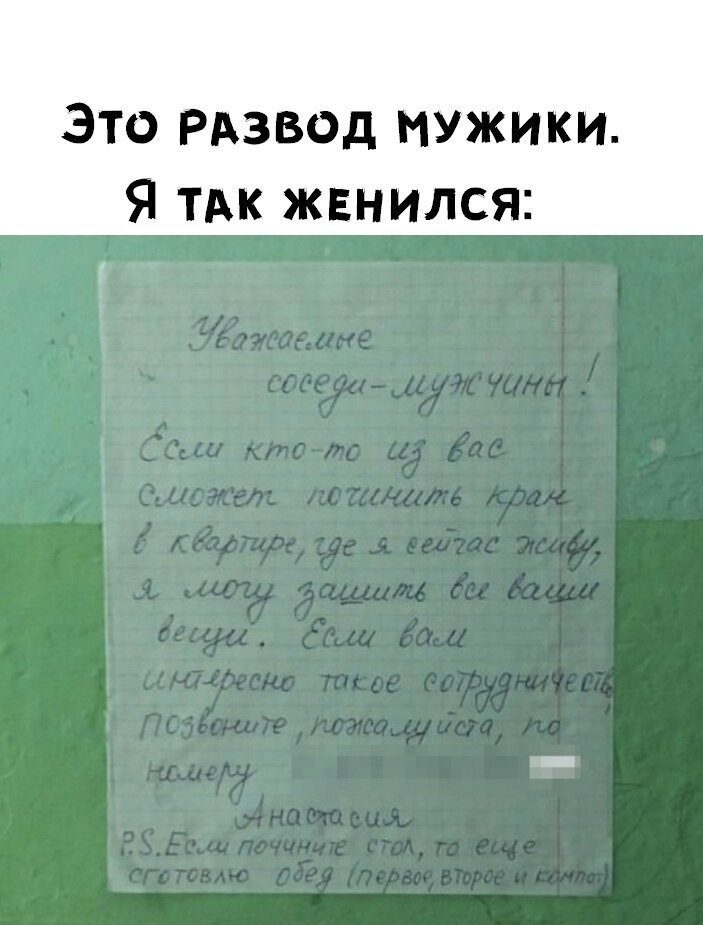 Это развод мужики.
Я так женился:
Уважаемые
соседи-мужчины!
Если кто-то из вас
сможет починить кран
в квартире, где я сейчас живу,
я могу зашить все ваши
вещи. Если вам
интересно такое сотрудничеств,
позвоните, пожалуйста, по
номеру
Анастасия
P.S. Если почините стол, то еще
сготовлю обед (первое, второе и компот)